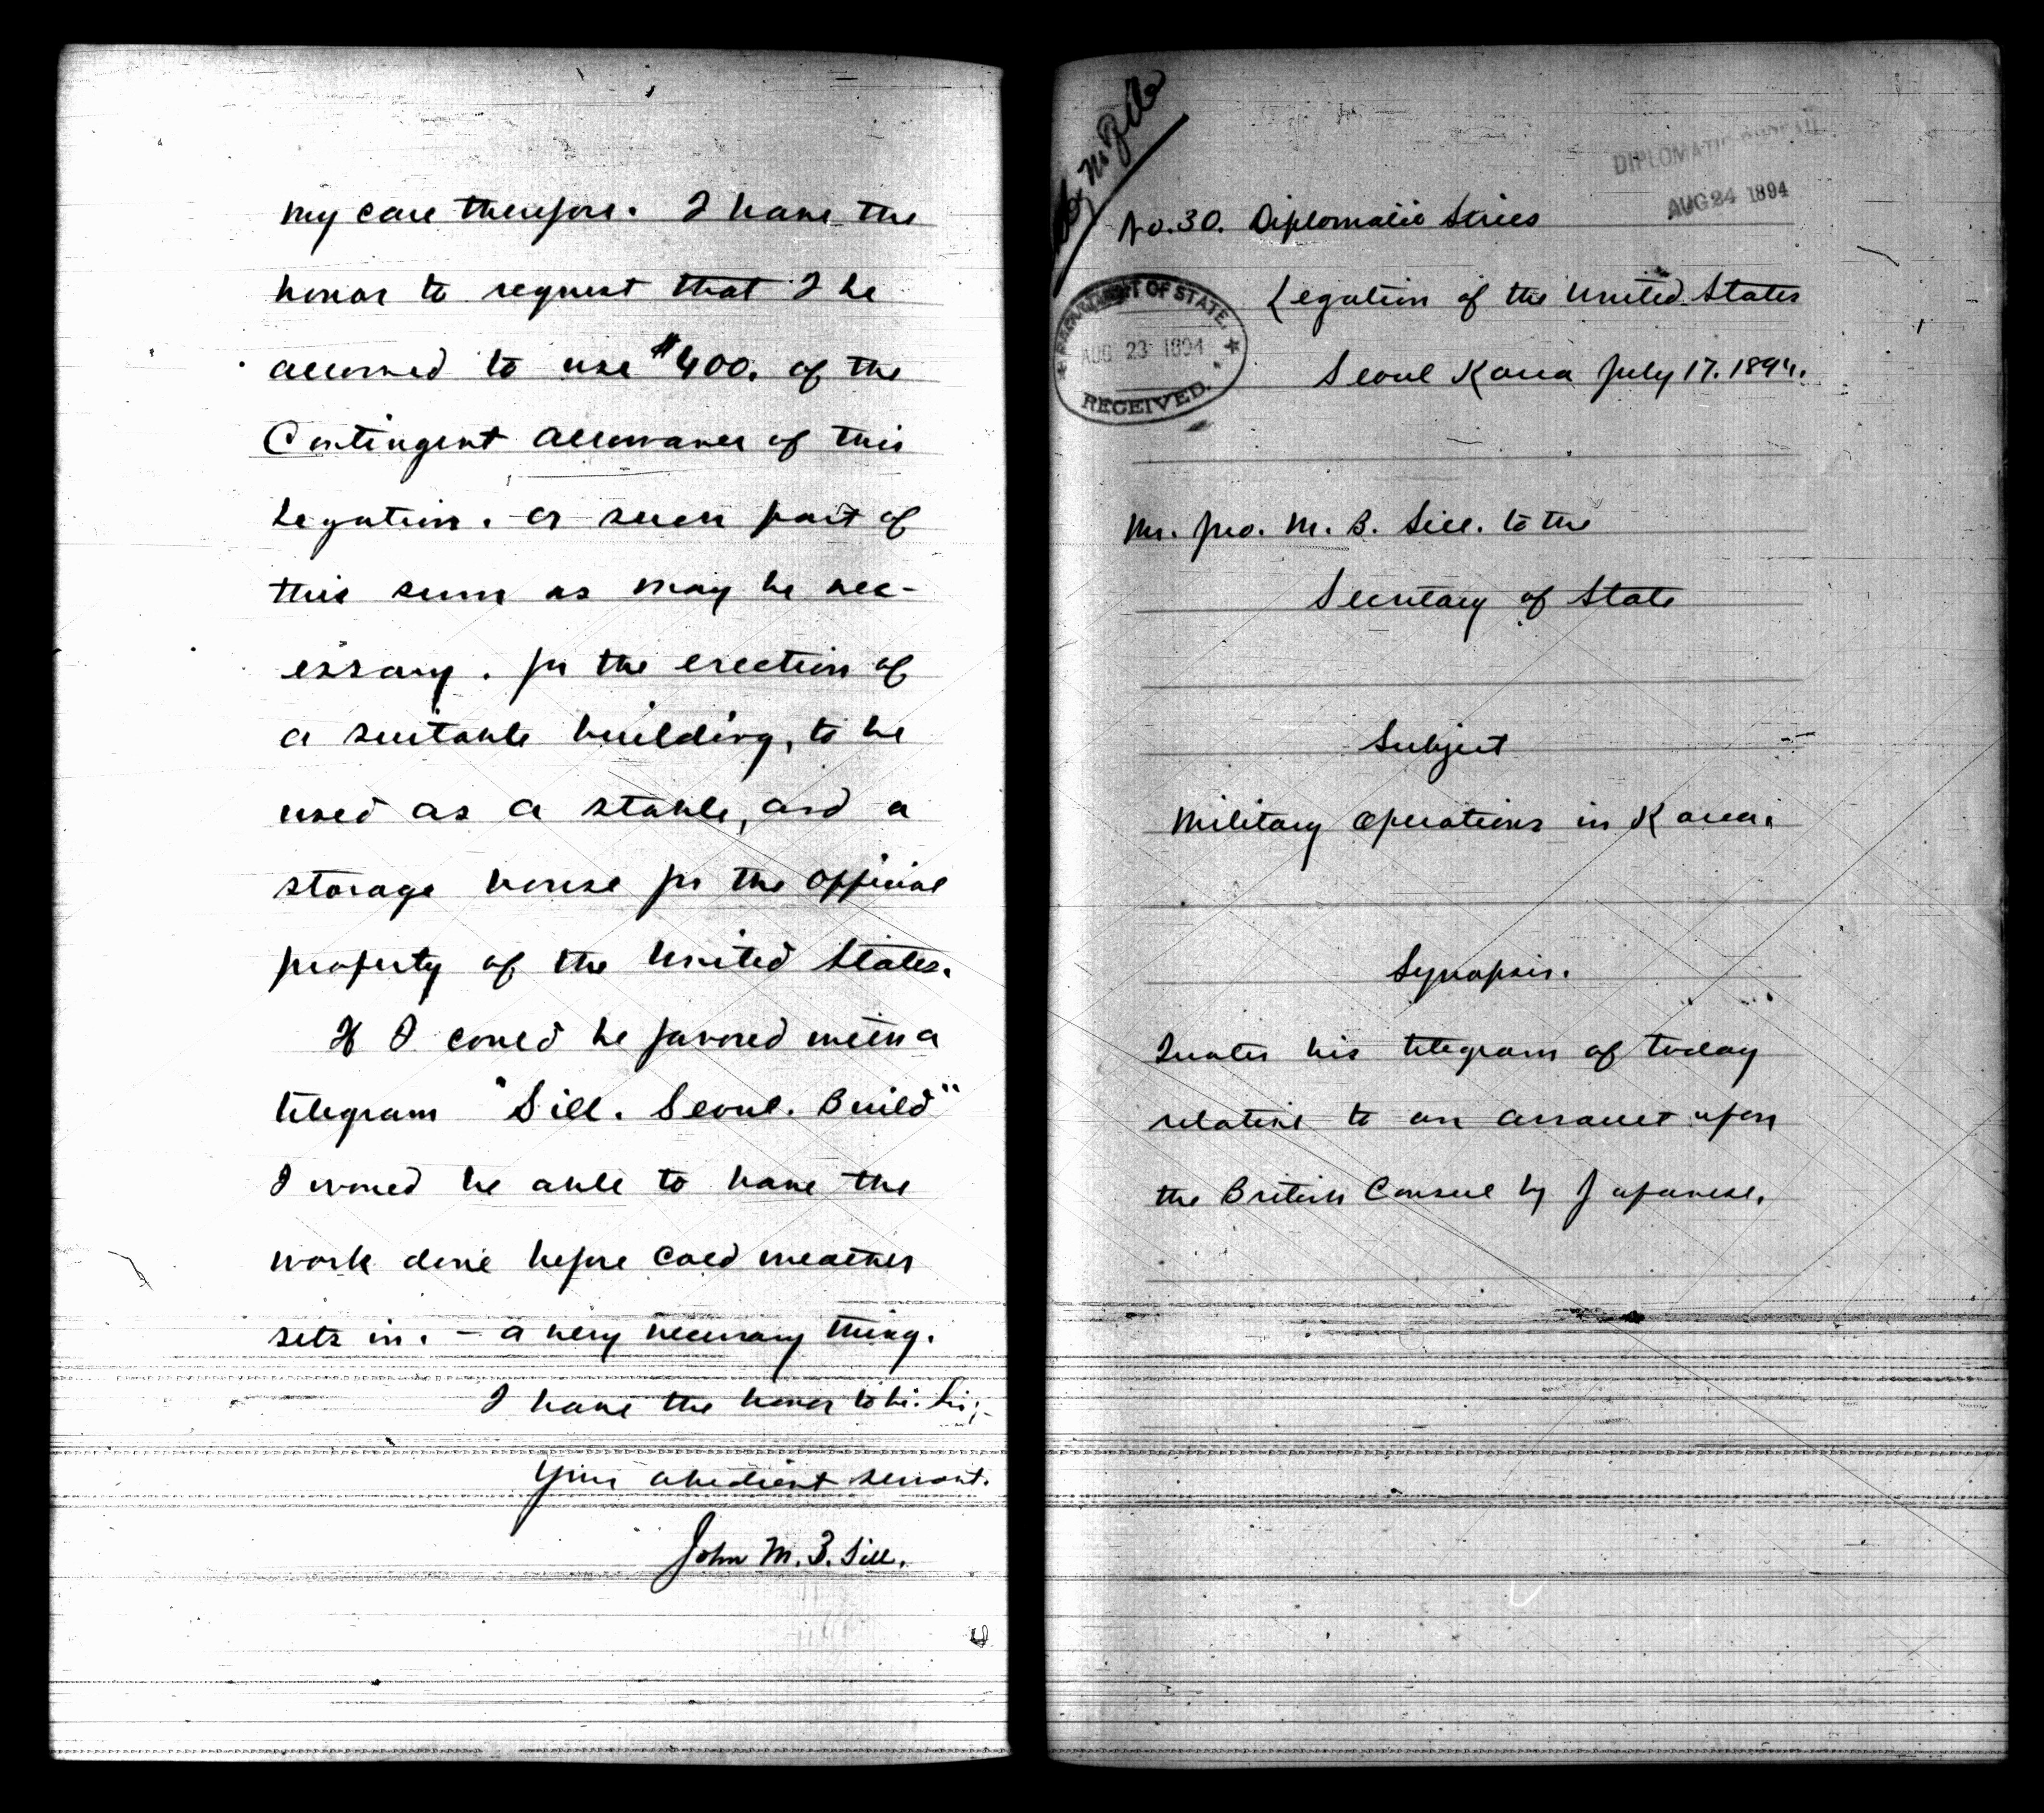 my care therefore. I have the
honor to request that I be
allowed to use $400. of the
Contingent allowance of this
Legation. or such part of
this sum as may be nec-
essary. for the erection of
a suitable building, to be
used as a stable, and a
storage house for the official
property of the United States.
If I could be favored with a
telegram "Sill. Seoul. Build"
I would be able to have the
work done before cold weather
sets in. - a very necessary thing.
I have the honor to be. Sir;-
Your obedient servant.
John M. B. Sill.
DIPLOMATIC BUREAU
AUG 24 1894
No. 30. Diplomatic Series
Legation of the United States
DEPARTMENT OF STATE.
AUG 23 1894
RECEIVED.
Seoul Korea July 17. 1894.
Mr. Jno. M. B. Sill. to the
Secretary of State
Subject
Military Operations in Korea.
Synopsis.
Quotes his telegram of today
relative to an assault upon
the British Consul by Japanese.